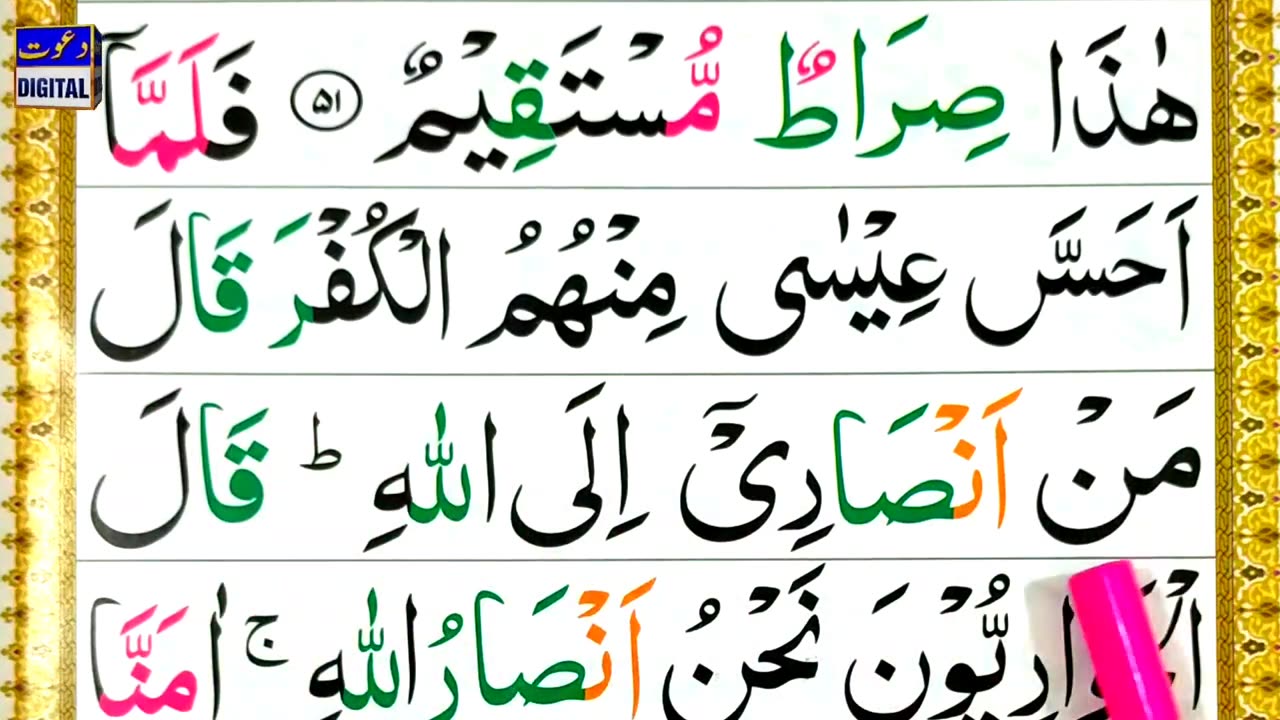 دعوت
DIGITAL
هٰذَا صِرَاطٌ مُّسْتَقِيْمٌ ﴿۵۱﴾ فَلَمَّآ
اَحَسَّ عِيْسٰى مِنْهُمُ الْكُفْرَ قَالَ
مَنْ اَنْصَارِىْۤ اِلَى اللّٰهِ ؕ قَالَ
نَحْنُ اَنْصَارُ اللّٰهِ ۚ اٰمَنَّا